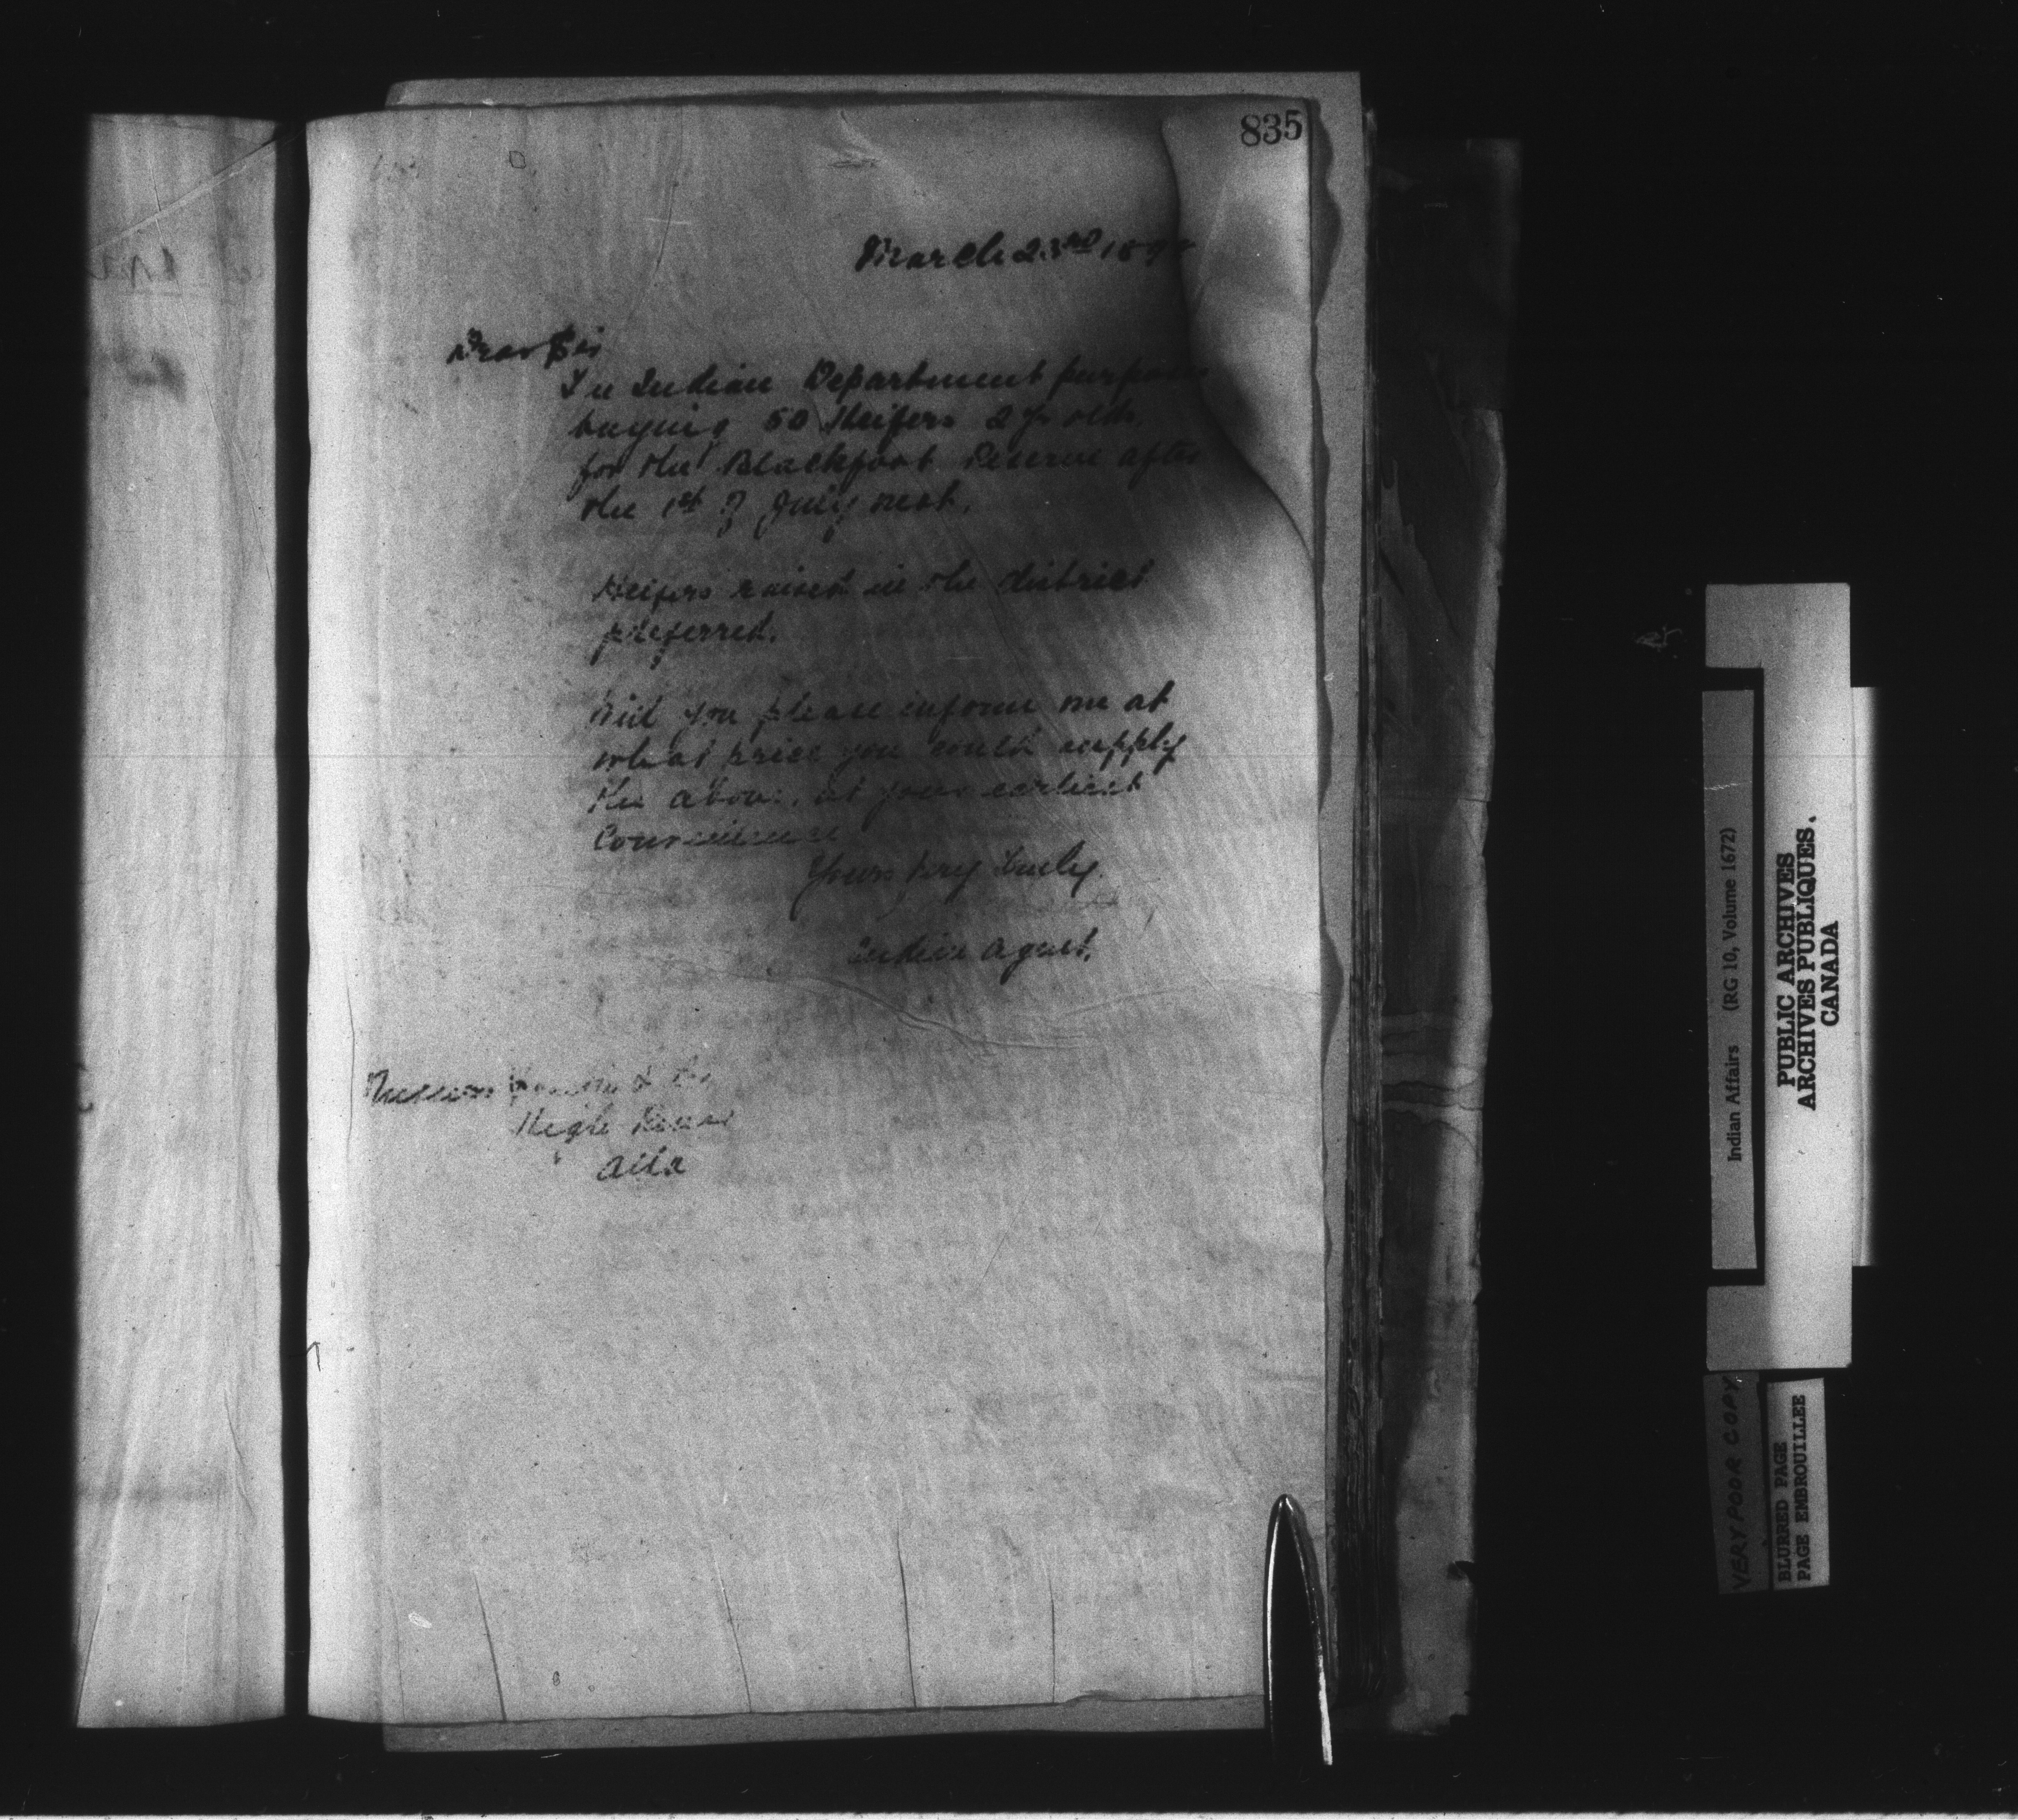 835
March 23rd 189
Dear Sir
The Indian Department purpose
buying 50 Heifers 2 yr olds.
for the Blackfoot Reserve after
the 1st of July next.
Heifers raised in the district
preferred.
Will you please inform me at
what price you could supply
the above, at your earliest
Convenience
Yours very truly
Indian Agent.
Messrs
High River
Alta
Indian Affairs (RG 10, Volume 1672)
PUBLIC ARCHIVES
ARCHIVES PUBLIQUES.
CANADA
VERY POOR COPY
BLURRED PAGE
PAGE EMBROUILLEE